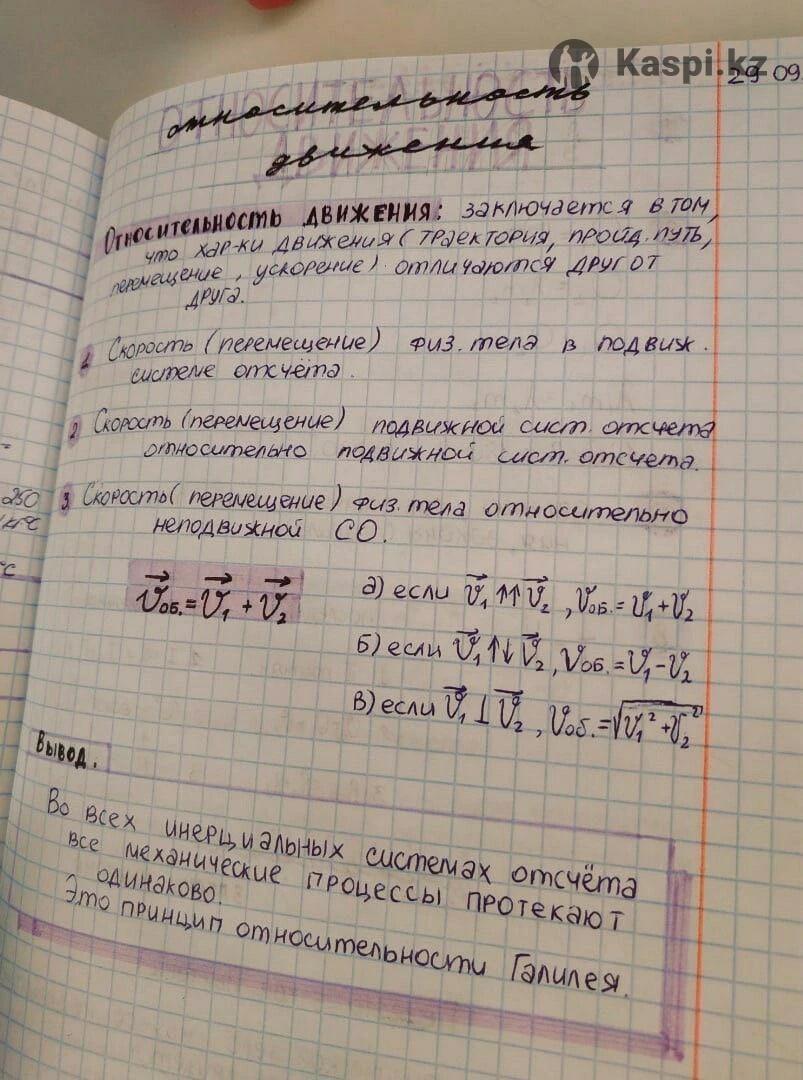 Kaspi.kz
29 09
относительность
движения
Относительность движения: заключается в том,
что хар-ки движения (траектория, пройд. путь,
перемещение, ускорение) отличаются друг от
друга.
1 Скорость (перемещение) физ. тела в подвиж.
системе отсчёта.
2 Скорость (перемещение) подвижной сист. отсчета
относительно подвижной сист. отсчета.
3 Скорость (перемещение) физ. тела относительно
неподвижной СО.
250
°С
v⃗об. = v⃗₁ + v⃗₂
а) если v⃗₁ ↑↑ v⃗₂, vоб. = v₁ + v₂
б) если v⃗₁ ↑↓ v⃗₂, vоб. = v₁ - v₂
в) если v⃗₁ ⊥ v⃗₂, vоб. = √(v₁² + v₂²)
Вывод.
Во всех инерциальных системах отсчёта
все механические процессы протекают
одинаково.
Это принцип относительности Галилея.